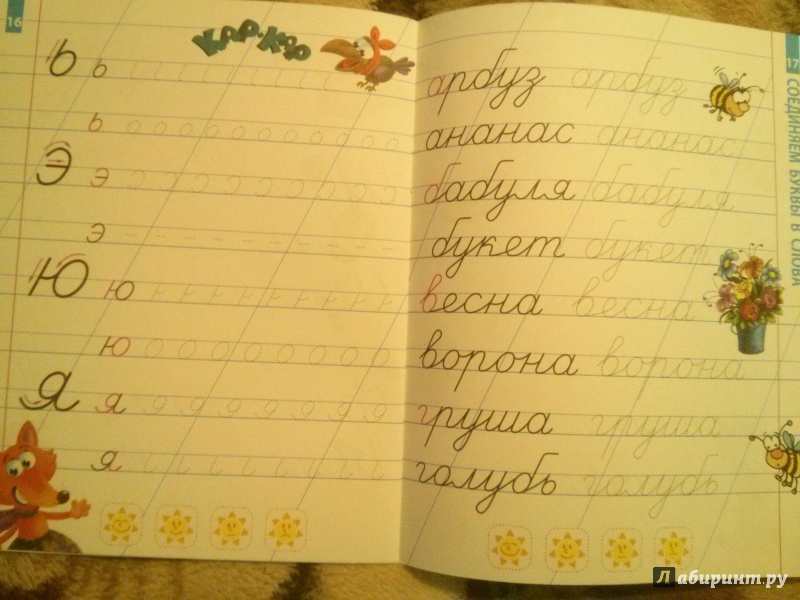 16
КАР-КАР
Ь ь
ь
Э э
э
Ю ю
ю
Я я
я
17
СОЕДИНЯЕМ БУКВЫ В СЛОВА
арбуз арбуз
ананас ананас
бабуля бабуля
букет букет
весна весна
ворона ворона
груша груша
голубь голубь
Лабиринт.ру